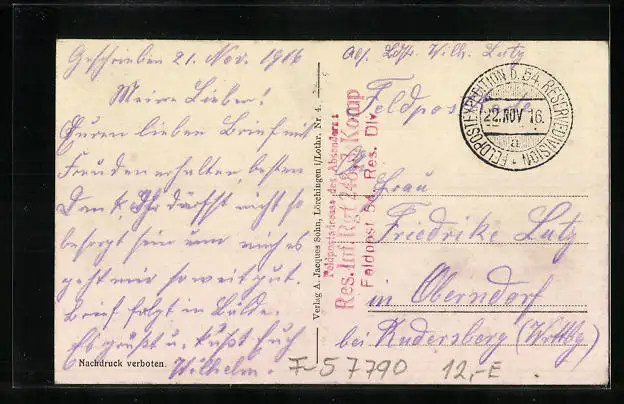 Geschrieben 21. Nov. 1916
Meine Lieben!
Euren lieben Brief mit
Freuden erhalten besten
Dank, Ihr dürft nicht so
besorgt sein um mich es
geht mir soweit gut.
Brief folgt in Bälde.
Es grüßt u. küßt Euch
Wilhelm.
Nachdruck verboten.
Verlag A. Jacques Sohn, Lörchingen i/Lothr. Nr. 4.
Feldpostadresse des Absenders:
Res. Inf. Rgt. 248, Komp
Feldpost 54. Res. Div.
Abs. Ldstr. Wilh. Lutz
Feldpostkarte
FELDPOSTEXPEDITION D. 54. RESERVEDIVISION
22. NOV 16.
a
Frau
Friedrike Lutz
in Oberndorf
bei Rudersberg (Wrttbg)
F-57790
12,-E